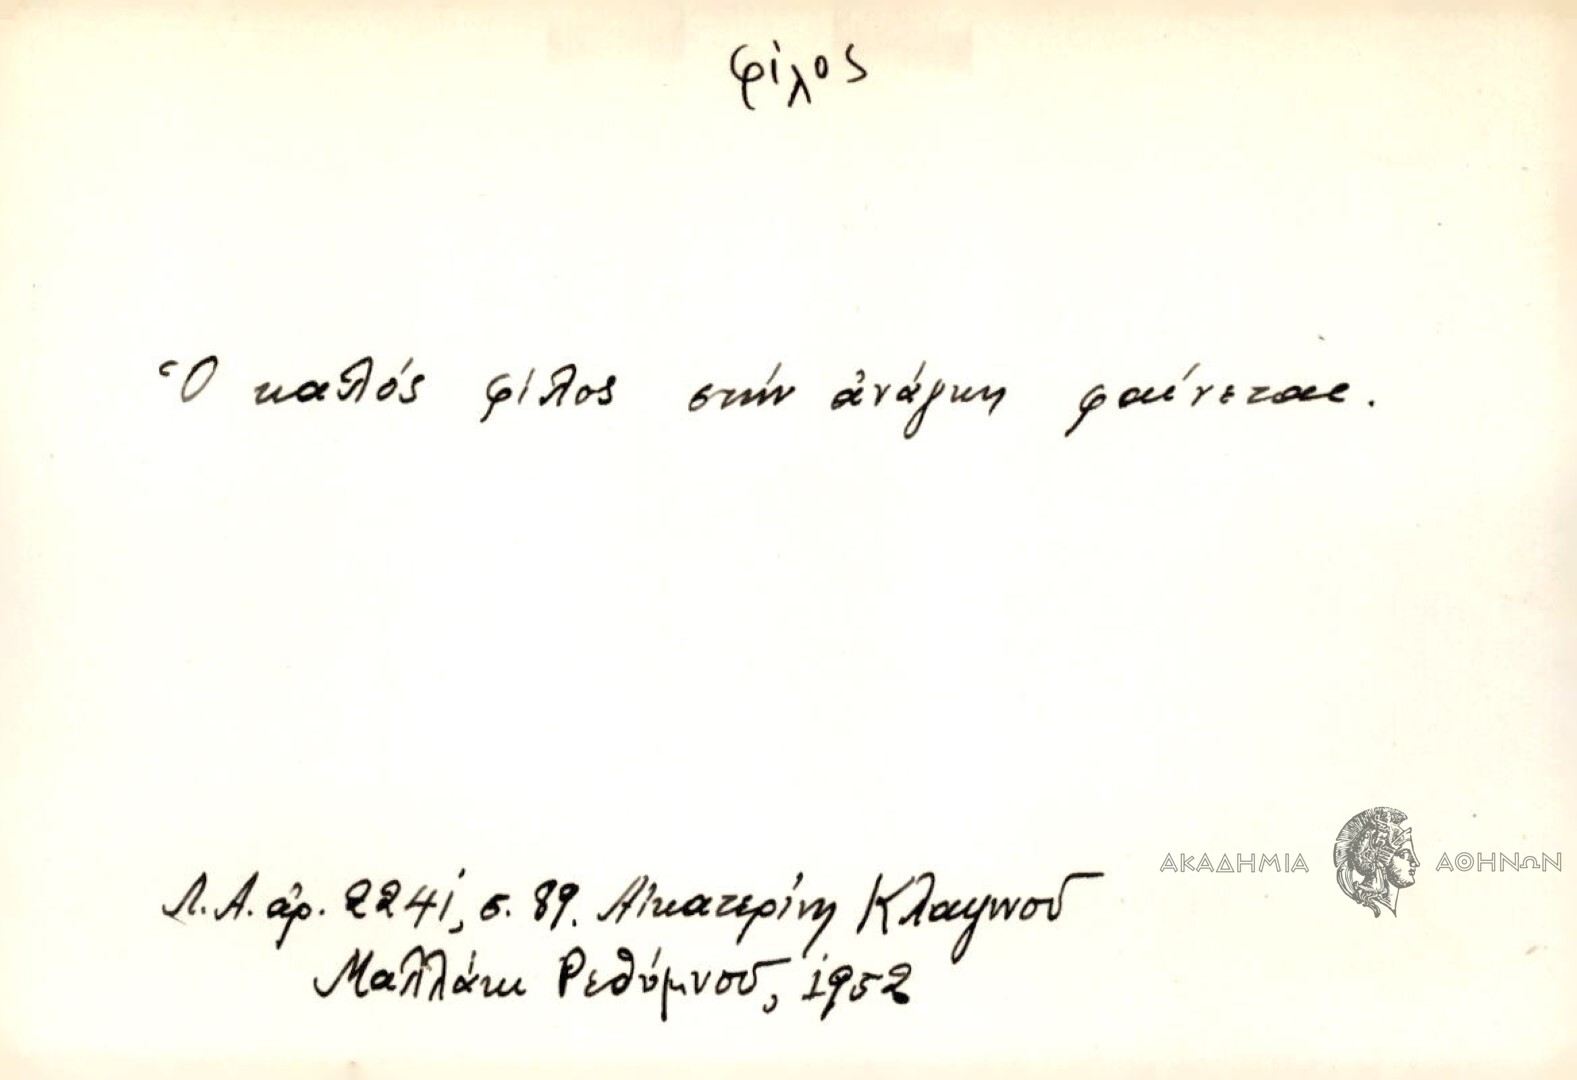 φίλος
Ὁ καλός φίλος στήν ἀνάγκη φαίνεται.
ΑΚΑΔΗΜΙΑ ΑΘΗΝΩΝ
Λ.Α. ἀρ. 2241, σ. 89. Αἰκατερίνη
Ρεθύμνου, 1952